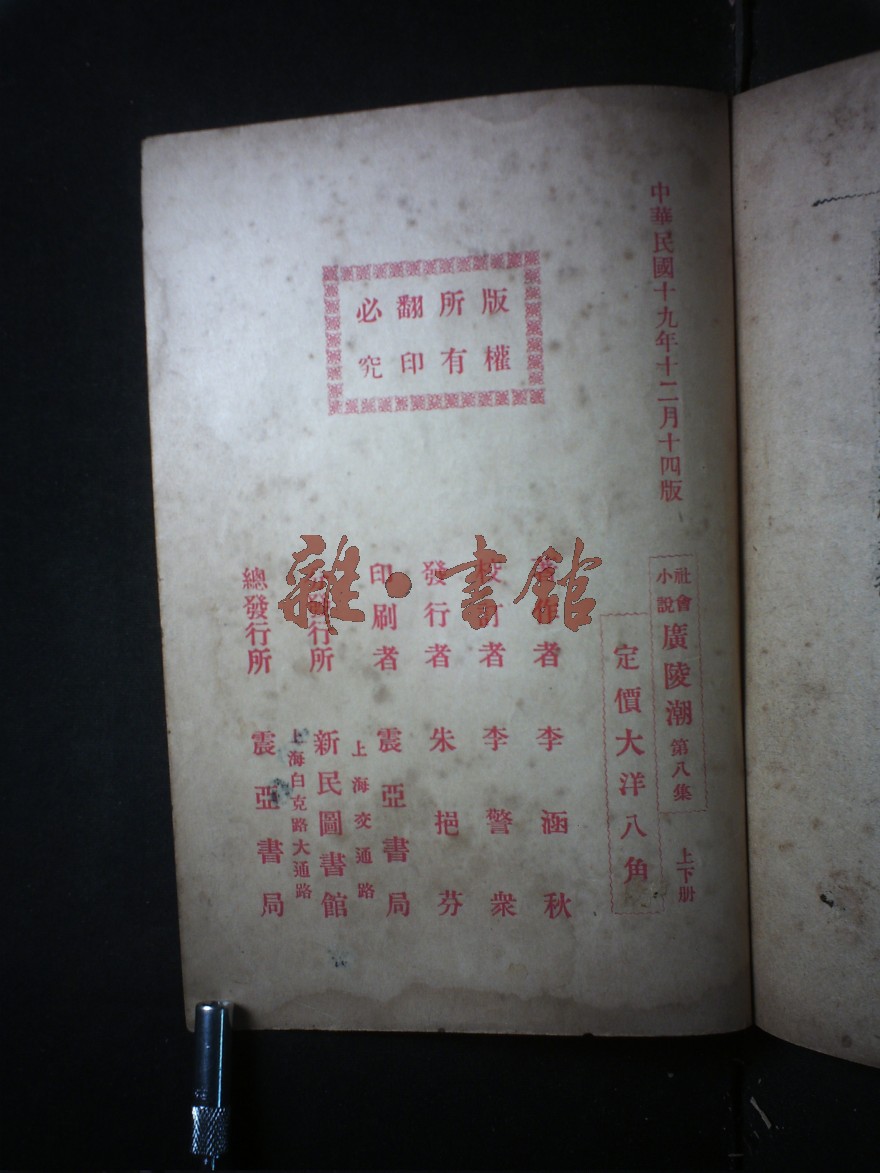 中華民國十九年十二月十四版
社會
小說
廣陵潮 第八集 上下册
定價大洋八角
版權
所有
翻印
必究
著作者 李涵秋
校訂者 李警衆
發行者 朱挹芬
印刷者 震亞書局
上海交通路
分發行所 新民圖書館
上海白克路大通路
總發行所 震亞書局
雜·書館